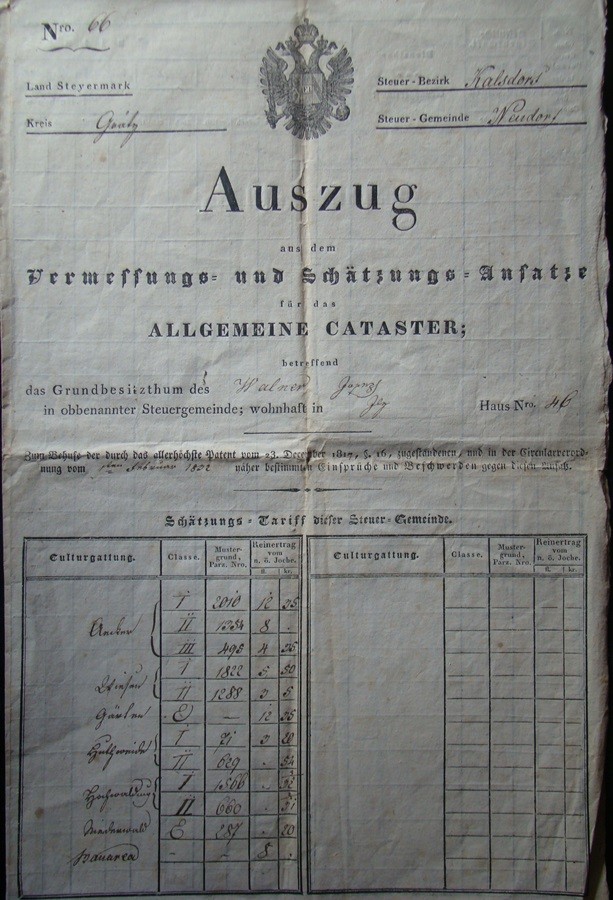 Nro. 66
Land Steyermark
Kreis Grätz
Steuer-Bezirk Kalsdorf
Steuer-Gemeinde Neudorf
Auszug
aus dem
Vermessungs- und Schätzungs-Ansatze
für das
ALLGEMEINE CATASTER;
betreffend
das Grundbesitzthum des Walner
in obbenannter Steuergemeinde; wohnhaft in Haus Nro. 46
Zum Behufe der durch das allerhöchste Patent vom 23. December 1817, §. 16, zugestandenen, und in der Circularverord-
nung vom 1ten Februar 1832 näher bestimmten Einsprüche und Beschwerden gegen diesen Ansatz.
Schätzungs-Tariff dieser Steuer-Gemeinde.
Culturgattung. Classe. Muster-grund, Parz. Nro. Reinertrag vom n. ö. Joche. fl. kr. Culturgattung. Classe. Muster-grund, Parz. Nro. Reinertrag vom n. ö. Joche. fl. kr.
I 2010 12 35
Aecker II 1334 8 .
III 495 4 35
I 1822 5 50
Wiesen II 1288 3 5
Gärten E – 12 35
I 71 3 20
Huthweide II 629 . 54
I 1566
Hochwaldung II 660 . 31
Niederwald E 287 . 20
Bauarea – – 8 .